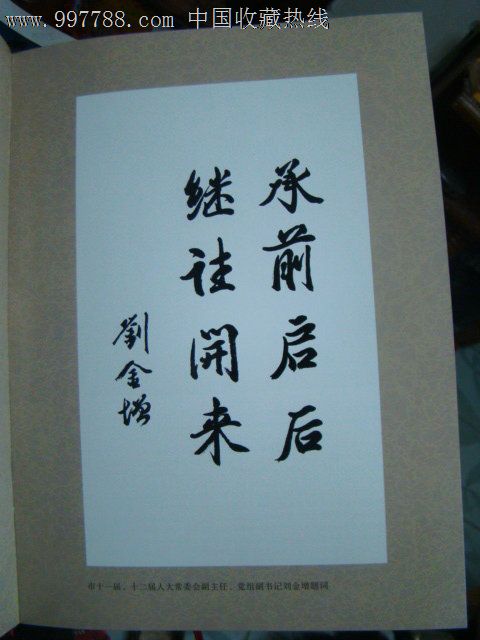 www.997788.com 中国收藏热线
承前启后
继往開来
劉金增
市十一届、十二届人大常委会副主任、党组副书记刘金增题词